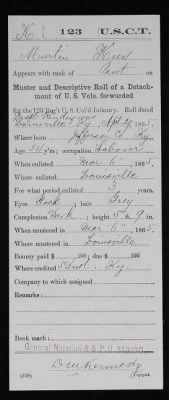 K | 123 | U.S.C.T.
Martin Reed
Appears with rank of Pvt on
Muster and Descriptive Roll of a Detach-
ment of U. S. Vols. forwarded
for the 123 Reg't U.S. Col'd Infantry. Roll dated
Draft Rendezvous
Louisville Ky Apl 29, 1865.
Where born Jefferson Co Ky
Age 34 y'rs; occupation Laborer
When enlisted Mar 6", 1865.
Where enlisted Louisville
For what period enlisted 3 years.
Eyes ; hair Grey
Complexion Dark; height 5 ft. 9 in.
When mustered in Mar 6", 1865.
Where mustered in Louisville
Bounty paid $ 100; due $ 100
Where credited 5 Dist. Ky.
Company to which assigned
Remarks:
Book mark:
General Notation R & P O
(339) Copyist.